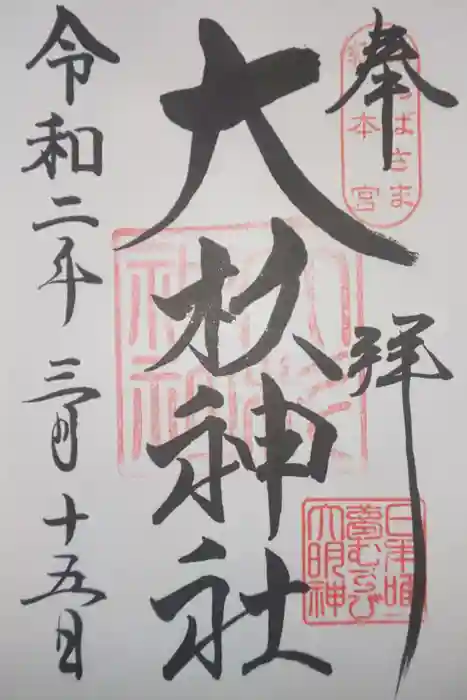 奉拝
大杉神社
令和二年三月十五日
あんばさま
総本宮
日本唯一
夢むすび
大明神